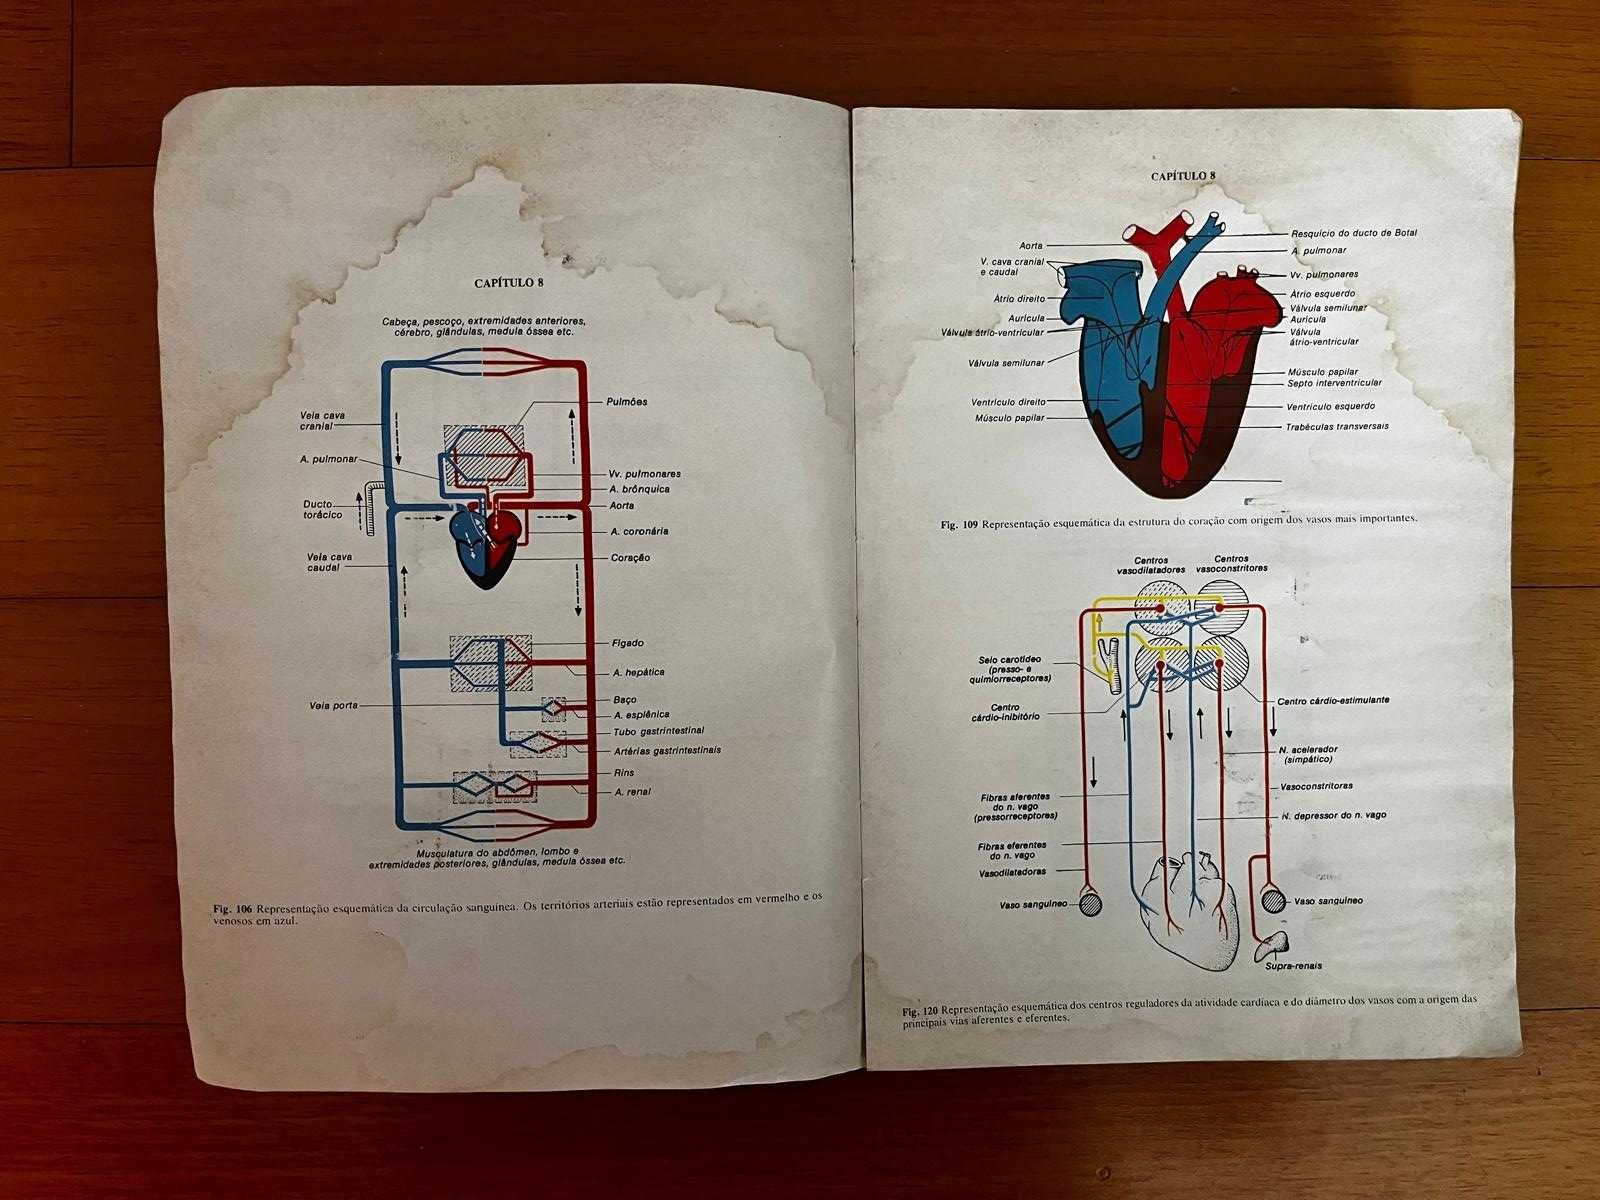 CAPÍTULO 8
Cabeça, pescoço, extremidades anteriores,
cérebro, glândulas, medula óssea etc.
Pulmões
Veia cava
cranial
A. pulmonar
Vv. pulmonares
A. brônquica
Ducto
torácico
Aorta
A. coronária
Veia cava
caudal
Coração
Fígado
A. hepática
Veia porta
Baço
A. esplênica
Tubo gastrintestinal
Artérias gastrintestinais
Rins
A. renal
Musculatura do abdômen, lombo e
extremidades posteriores, glândulas, medula óssea etc.
Fig. 106 Representação esquemática da circulação sanguínea. Os territórios arteriais estão representados em vermelho e os
venosos em azul.
CAPÍTULO 8
Aorta
V. cava cranial
e caudal
Átrio direito
Aurícula
Válvula átrio-ventricular
Válvula semilunar
Ventrículo direito
Músculo papilar
Resquício do ducto de Botal
A. pulmonar
Vv. pulmonares
Átrio esquerdo
Válvula semilunar
Aurícula
Válvula
átrio-ventricular
Músculo papilar
Septo interventricular
Ventrículo esquerdo
Trabéculas transversais
Fig. 109 Representação esquemática da estrutura do coração com origem dos vasos mais importantes.
Centros
vasodilatadores
Centros
vasoconstritores
Seio carotídeo
(presso- e
quimiorreceptores)
Centro
cárdio-inibitório
Centro cárdio-estimulante
N. acelerador
(simpático)
Vasoconstritoras
Fibras aferentes
do n. vago
(pressorreceptores)
N. depressor do n. vago
Fibras eferentes
do n. vago
Vasodilatadoras
Vaso sanguíneo
Vaso sanguíneo
Supra-renais
Fig. 120 Representação esquemática dos centros reguladores da atividade cardíaca e do diâmetro dos vasos com a origem das
principais vias aferentes e eferentes.